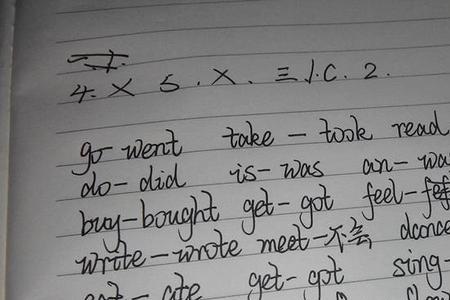 4. X 5. X. 三 1. C. 2.
go-went take-took read
do-did is-was an-wa
buy-bought get-got feel-
write-wrote meet-不会 dance
eat-ate get-got sing-